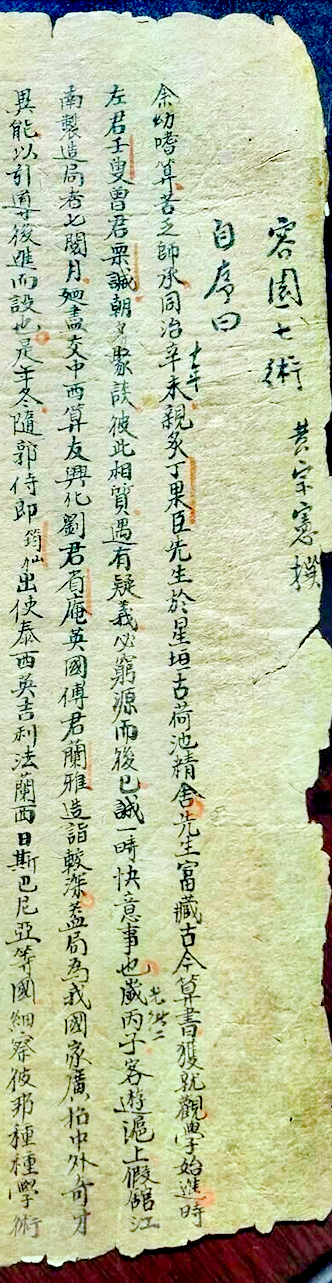 容圓七術 黃宗憲撰
自序曰
余幼嗜算苦乏師承同治辛未十年親炙丁果臣先生於星垣古荷池精舍先生富藏古今算書獲就觀學始進時
左君壬叟曾君栗諴朝夕聚談彼此相質遇有疑義必窮源而後已誠一時快意事也歲丙子光緒二客遊滬上假館江
南製造局者七閱月廼盡交中西算友興化劉君省庵英國傅君蘭雅造詣較深蓋局為我國家廣招中外奇才
異能以引導後進而設也是年冬隨郭侍郎筠仙出使泰西英吉利法蘭西日斯巴尼亞等國細察彼邦種種學術